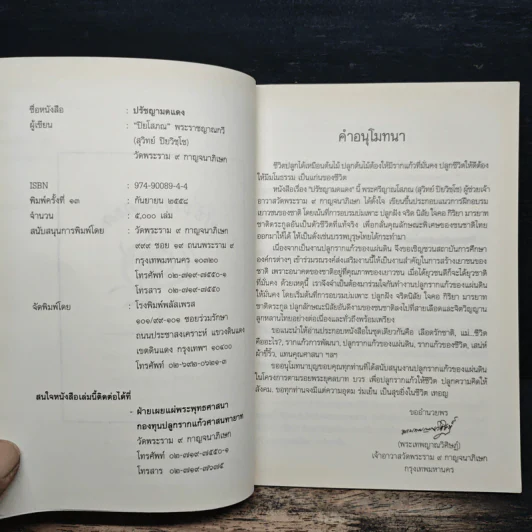 ชื่อหนังสือ : ปรัชญามดแดง
ผู้เขียน : "ปิยโสภณ" พระราชญาณกวี
(สุวิทย์ ปิยวิชฺโช)
วัดพระราม ๙ กาญจนาภิเษก
ISBN : 974-90089-4-4
พิมพ์ครั้งที่ ๑๓ : กันยายน ๒๕๕๘
จำนวน : ๕,๐๐๐ เล่ม
สนับสนุนการพิมพ์โดย : วัดพระราม ๙ กาญจนาภิเษก
๙๙๙ ซอย ๑๙ ถนนพระราม ๙
กรุงเทพมหานคร ๑๐๓๒๐
โทรศัพท์ ๐๒-๗๑๙-๗๕๕๐-๑
โทรสาร ๐๒-๗๑๙-๗๖๗๕
จัดพิมพ์โดย : โรงพิมพ์พลัสเพรส
๑๐๑/๙๙-๑๐๑ ซอยร่วมรักษา
ถนนประชาสงเคราะห์ แขวงดินแดง
เขตดินแดง กรุงเทพฯ ๑๐๔๐๐
โทรศัพท์ ๐๒-๖๔๒-๐๖๒๑-๓
สนใจหนังสือเล่มนี้ติดต่อได้ที่
- ฝ่ายเผยแผ่พระพุทธศาสนา
กองทุนปลูกรากแก้วศาสนทายาท
วัดพระราม ๙ กาญจนาภิเษก
โทรศัพท์ ๐๒-๗๑๙-๗๕๕๐-๑
โทรสาร ๐๒-๗๑๙-๗๖๗๕
คำอนุโมทนา
ชีวิตปลูกได้เหมือนต้นไม้ ปลูกต้นไม้ต้องให้มีรากแก้วที่มั่นคง ปลูกชีวิตให้ดีต้อง
ให้มีมโนธรรม เป็นแก่นของชีวิต
หนังสือเรื่อง "ปรัชญามดแดง" นี้ พระราชญาณกวี (สุวิทย์ ปิยวิชฺโช) ผู้ช่วยเจ้า
อาวาสวัดพระราม ๙ กาญจนาภิเษก ได้ตั้งใจ เขียนขึ้นประกอบแนวการฝึกอบรม
เยาวชนของชาติ โดยเน้นที่การอบรมบ่มเพาะ ปลูกฝัง จริต นิสัย ใจคอ กิริยา มารยาท
ชาติตระกูลอันเป็นตัวชีวิตที่แท้จริง เพื่อกลั่นคุณลักษณะพิเศษของชนชาติไทย
ออกมาให้ได้ ให้เป็นดั่งเช่นบรรพบุรุษไทยได้กระทำมา
เนื่องจากเป็นงานปลูกรากแก้วของแผ่นดิน จึงขอเชิญชวนสถาบันการศึกษา
องค์กรต่างๆ เข้าร่วมรณรงค์ส่งเสริมงานนี้ให้เป็นงานสำคัญในการสร้างเยาวชนของ
ชาติ เพราะอนาคตของชาติอยู่ที่คุณภาพของเยาวชน เมื่อได้ยุวชนดีก็จะได้ยุวชาติ
ที่มั่นคง ด้วยเหตุนี้ เราจึงจำเป็นต้องมาร่วมใจกันทำงานปลูกรากแก้วของแผ่นดิน
ให้มั่นคง โดยเริ่มต้นที่การอบรมบ่มเพาะ ปลูกฝัง จริตนิสัย ใจคอ กิริยา มารยาท
ชาติตระกูล ปลูกลักษณะนิสัยอันดีงามของชนชาติลงไปที่สายเลือดและจิตวิญญาณ
ลูกหลานไทยอย่างต่อเนื่องและทั่วถึงพร้อมเพรียง
ขอแนะนำให้อ่านประกอบหนังสือในชุดเดียวกันคือ เลือดรักชาติ, แม่...ชีวิต
คืออะไร?, รากแก้วการพัฒนา, ปลูกรากแก้วของแผ่นดิน, รากแก้วของชีวิต, เสน่ห์
ผ้าขี้ริ้ว, แทนคุณศาสนา ฯลฯ
ขออนุโมทนาบุญขอบคุณทุกท่านที่ได้สนับสนุนงานปลูกรากแก้วของแผ่นดิน
ในโครงการตามรอยพระยุคลบาท บวร เพื่อปลูกรากแก้วให้ชีวิต ปลูกความคิดให้
สังคม. ขอทุกท่านจงมีแต่ความอุดม ร่มเย็น เป็นสุขยิ่งในชีวิต เทอญ
ขออำนวยพร
(พระเทพญาณวิศิษฏ์)
เจ้าอาวาสวัดพระราม ๙ กาญจนาภิเษก
กรุงเทพมหานคร